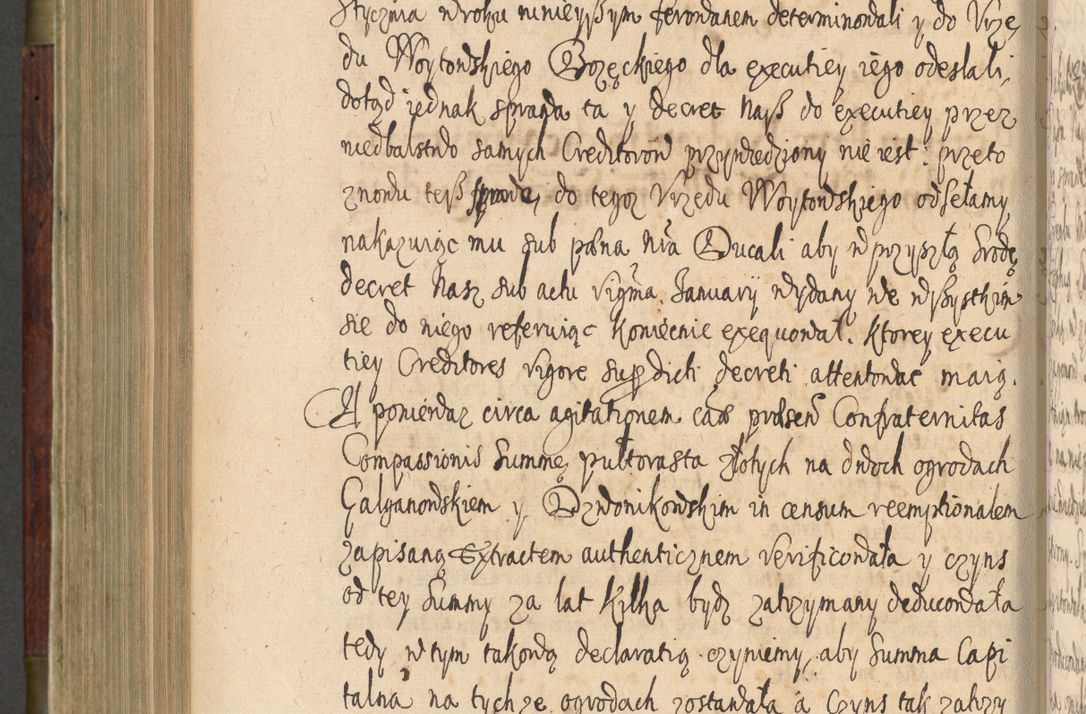 Stycznia w roku ninieyßym ferowanem determinowali y do Vrzę
du Woytowskiego Gozęckiego dla executiey iego odeslali,
dotąd iednak sprawa ta y decret Naß do executiey przez
niedbalstwo samych Creditorow przywiedziony nie iest: przeto
znowu teß sprawę, do tegoz Vrzędu Woytowskiego odsełamy
nakazuiąc mu sub pœna Nra Ducali aby w przyszłą Srodę
decret Nasz sub actu Vigma Januarÿ wydany we wßystkim
sie do niego referuiąc koniecnie exequował. Ktorey execu
tiey Creditores vigore supradicti decreti attentować maią.
A ponieważ circa agitationem causæ præsens Confraternitas
Compassionis Summę pułtorasta złotych na dwoch ogrodach
Galganowskiem y Dzwonikowskim in censum reemptionalem
zapisaną Extractem authenticznem verificowała y czyns
od tey Summy za lat kilka bydz zatrzymany deducowała
tedy w tym takową declaratią czyniemy, aby Summa Capi
talna na tychze ogrodach zostawała a Czyns tak zatrzy